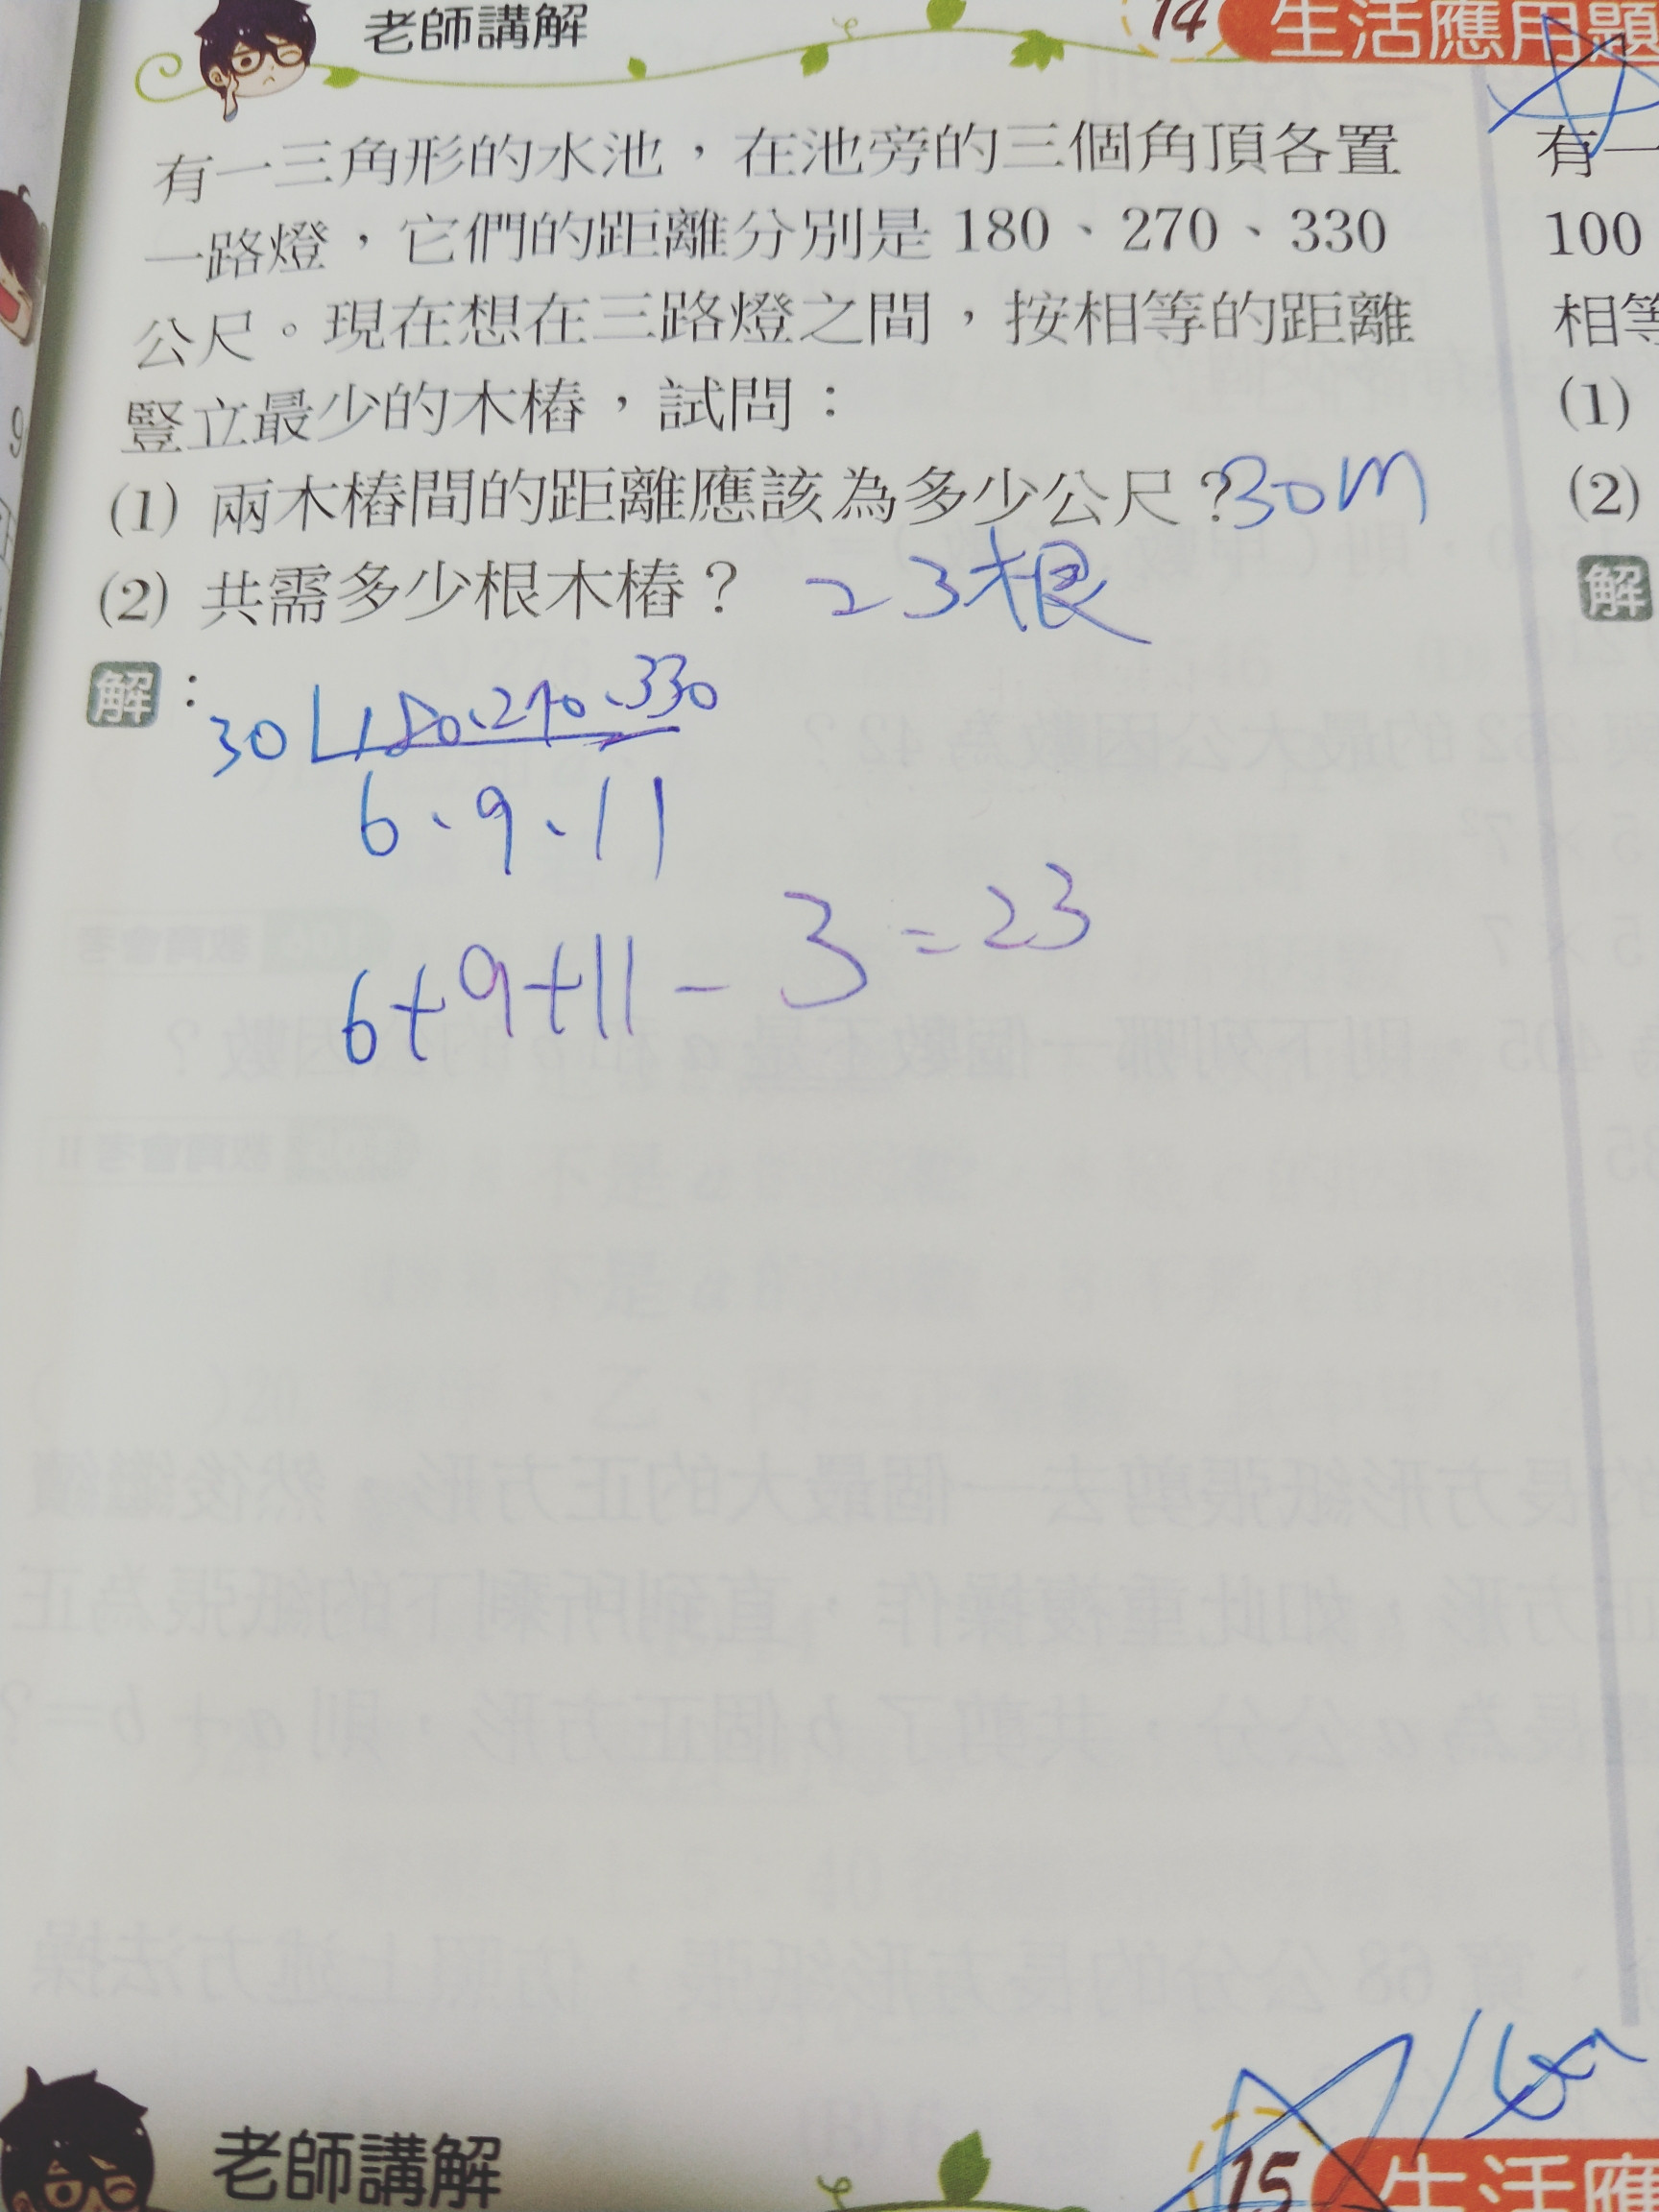 老師講解
14 生活應用題
有一三角形的水池，在池旁的三個角頂各置
一路燈，它們的距離分別是 180、270、330
公尺。現在想在三路燈之間，按相等的距離
豎立最少的木樁，試問：
(1) 兩木樁間的距離應該為多少公尺？30M
(2) 共需多少根木樁？ 23根
解：
30 180、270、330
6、9、11
6+9+11-3=23
有一
100
相等
(1)
(2)
解
老師講解
15 生活應